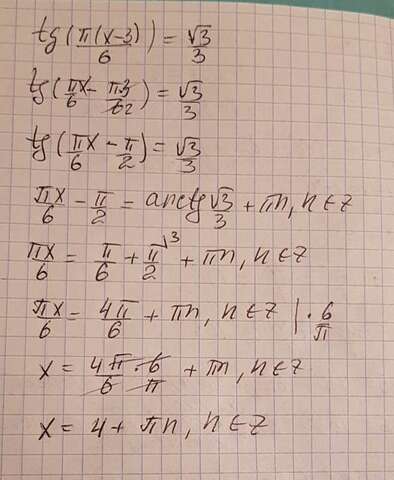 tg(π(x-3)/6) = √3/3
tg(πx/6 - π3/62) = √3/3
tg(πx/6 - π/2) = √3/3
πx/6 - π/2 = arctg √3/3 + πn, n ∈ Z
πx/6 = π/6 + π/2 \3 + πn, n ∈ Z
πx/6 = 4π/6 + πn, n ∈ Z | · 6/π
x = 4π/6 · 6/π + πn, n ∈ Z
x = 4 + πn, n ∈ Z